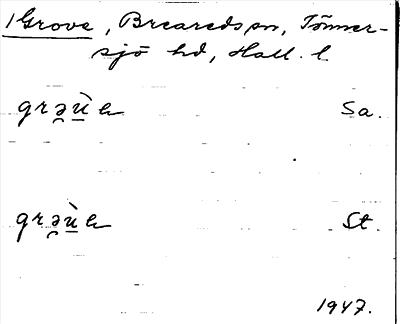 1 Grova, Breareds sn, Tönner-
sjö hd, Hall. l.
grə̯ù̲a Sa.
grə̯ù̲a St.
1947.